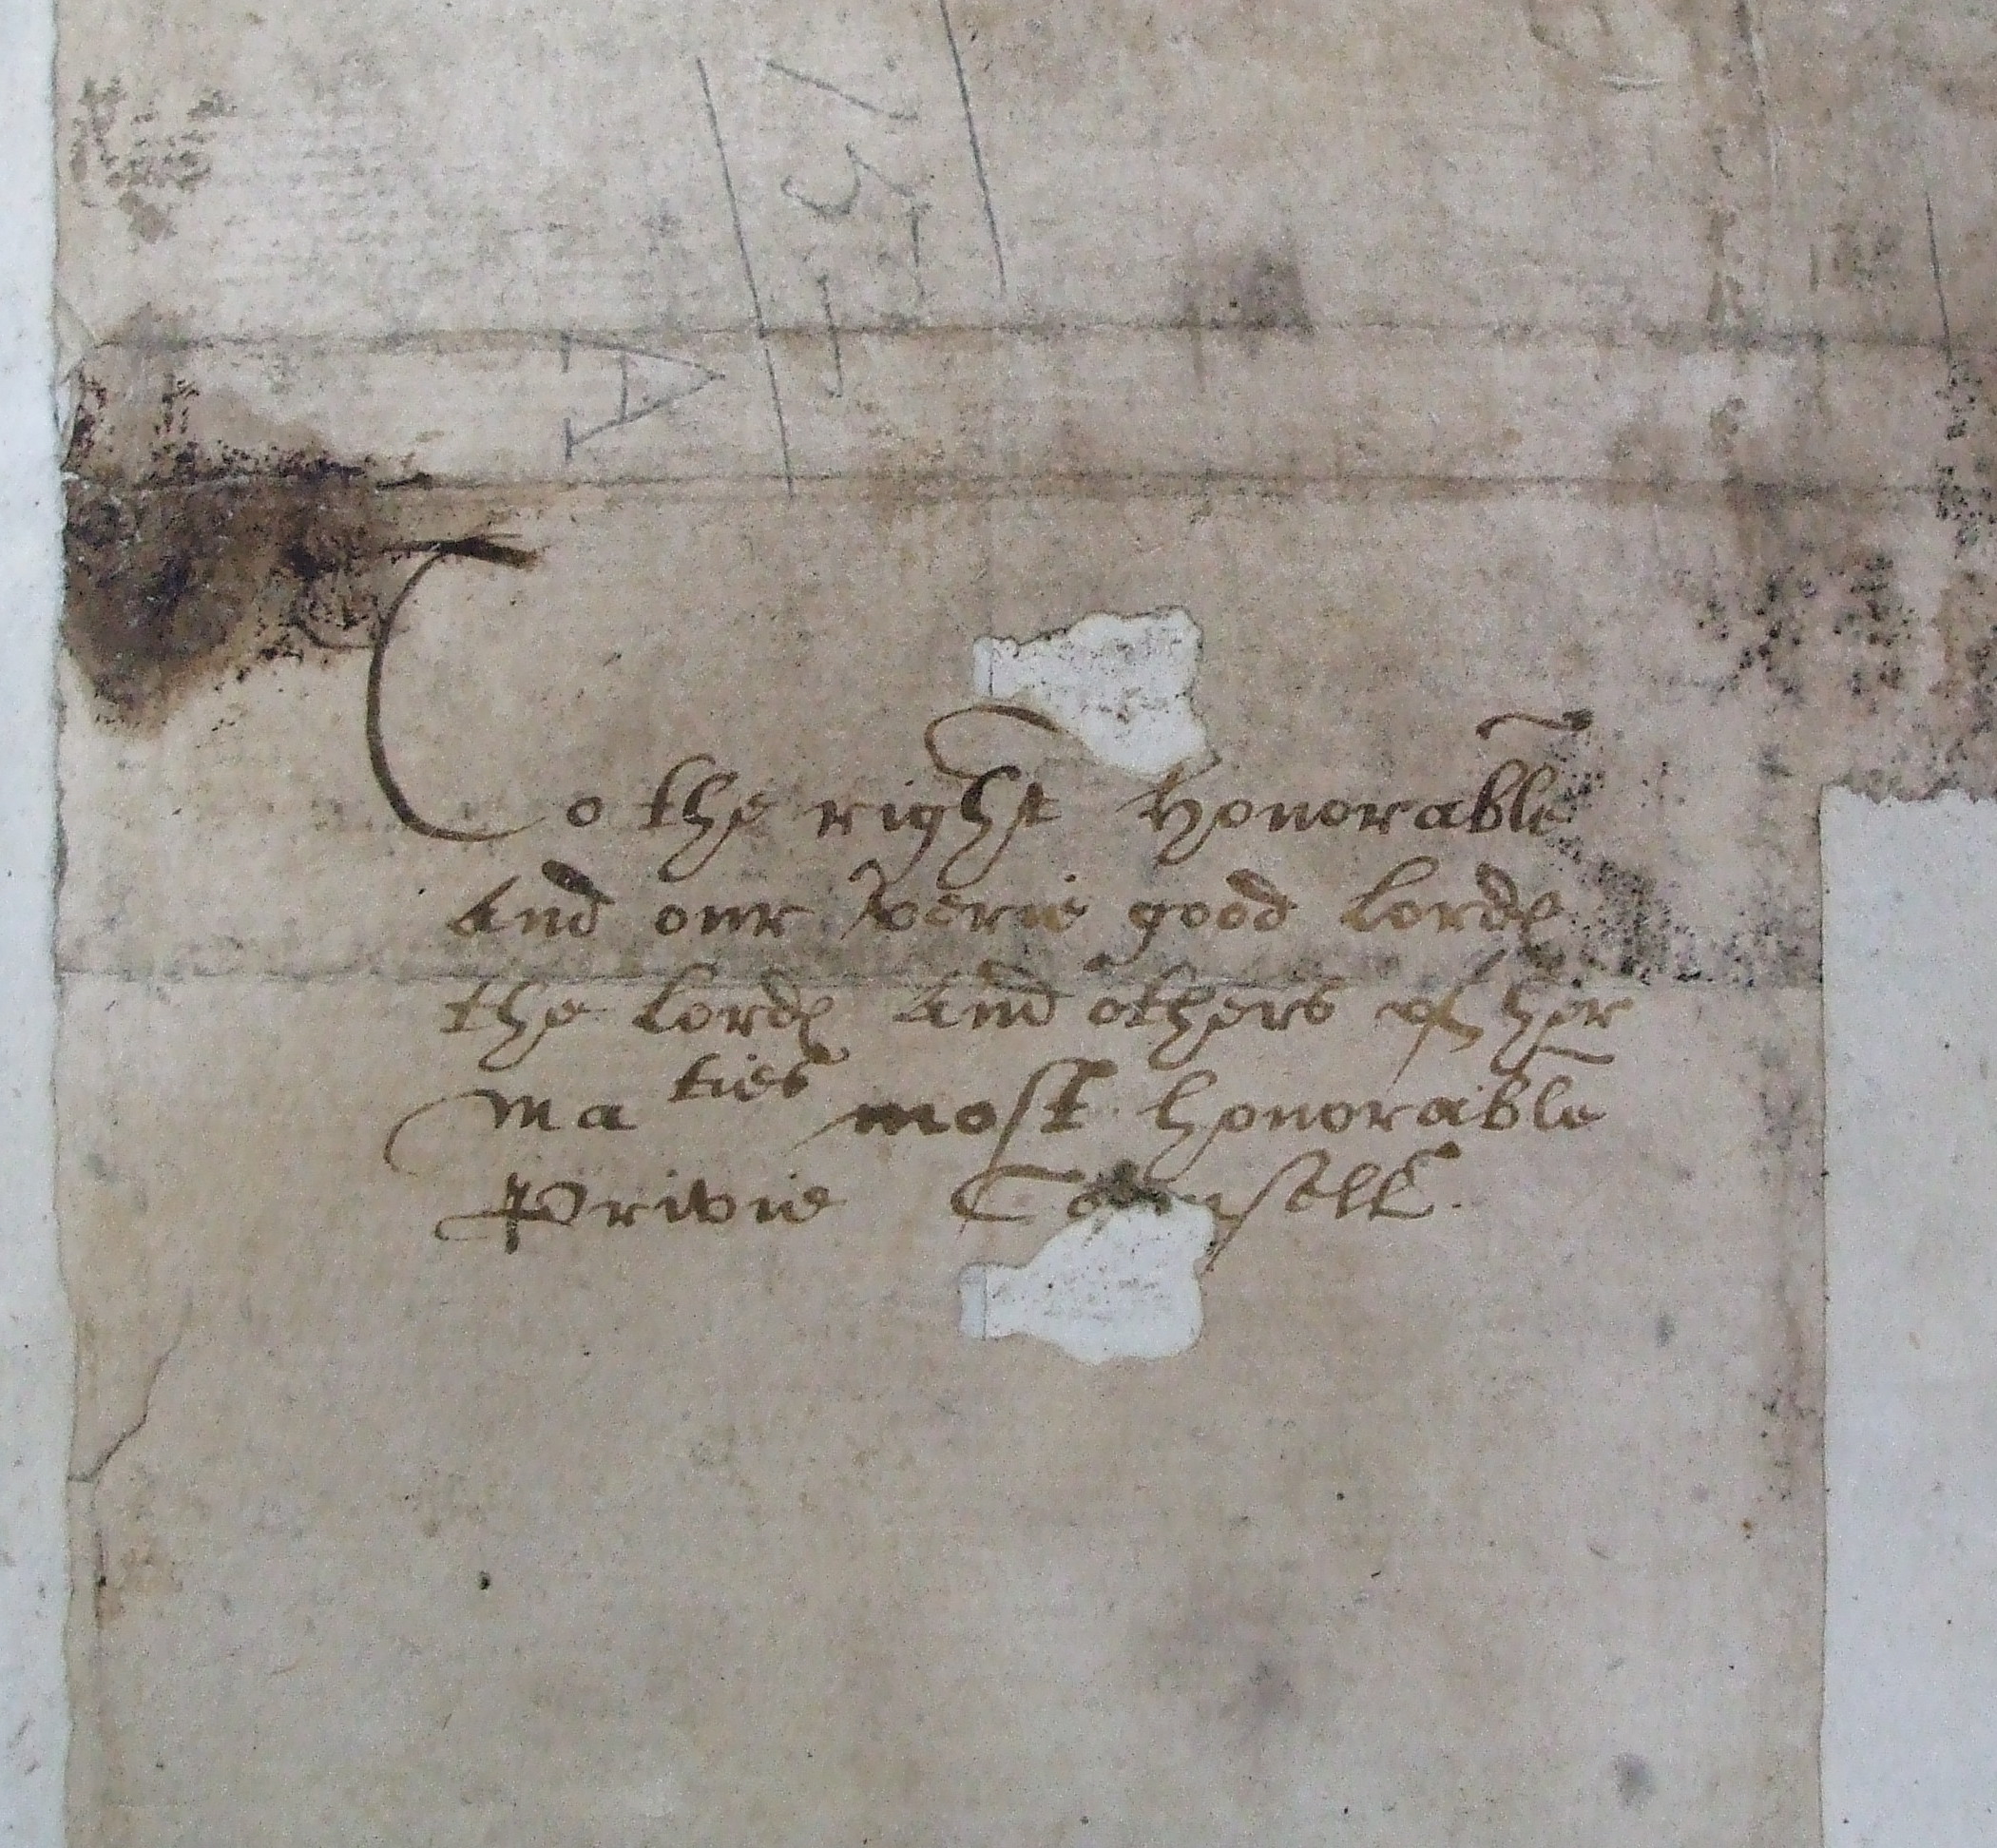 To the right Honorable
And our verie good Lordę
the Lordę And others of her
Ma^ties most honorable
Privie Counsell.
A